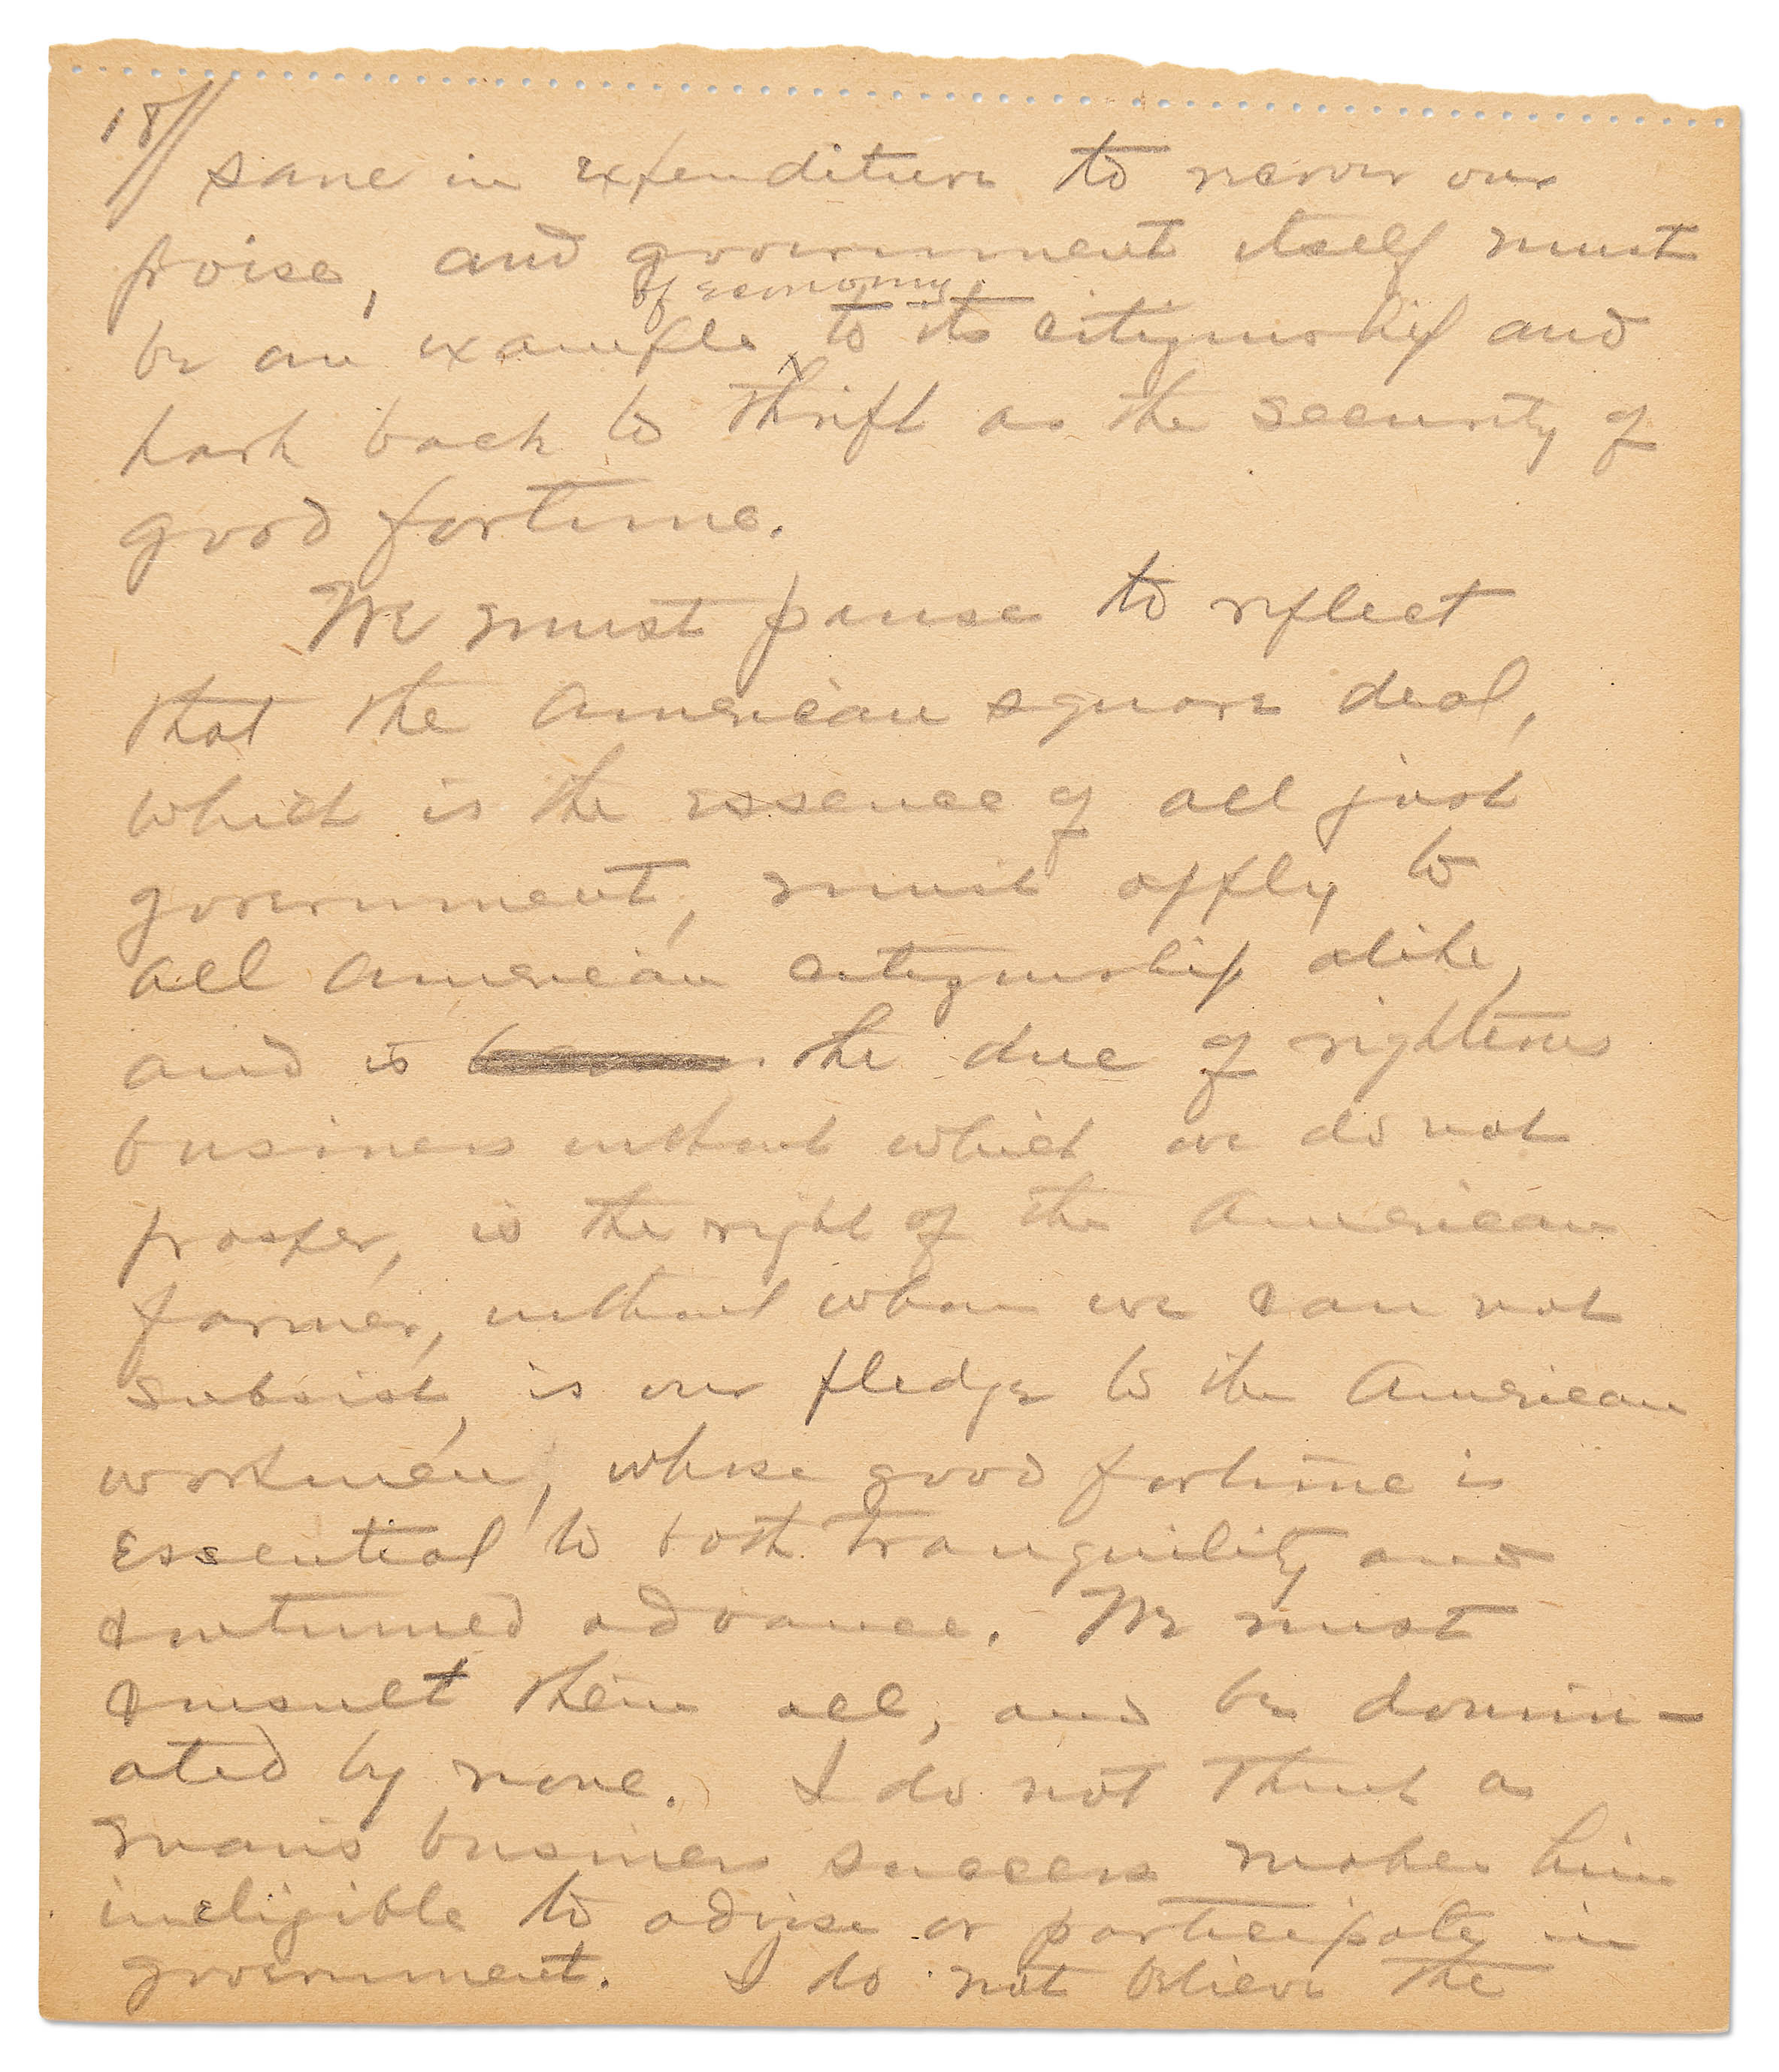 18
sane in expenditure to never our
poise, and government itself must
of economy
be an example to its citizenship and
hark back to thrift as the security of
good fortune.
We must pause to reflect
that the American square deal,
which is the essence of all just
government, must apply to
all American citizenship alike,
and is the due of righteous
business without which we do not
prosper, is the right of the American
farmer, without whom we can not
subsist, is our pledge to the American
workmen, whose good fortune is
essential to both tranquility and
continued advance. We must
consult them all, and be domin-
ated by none. I do not think a
man's business success makes him
ineligible to advise or participate in
government. I do not believe the